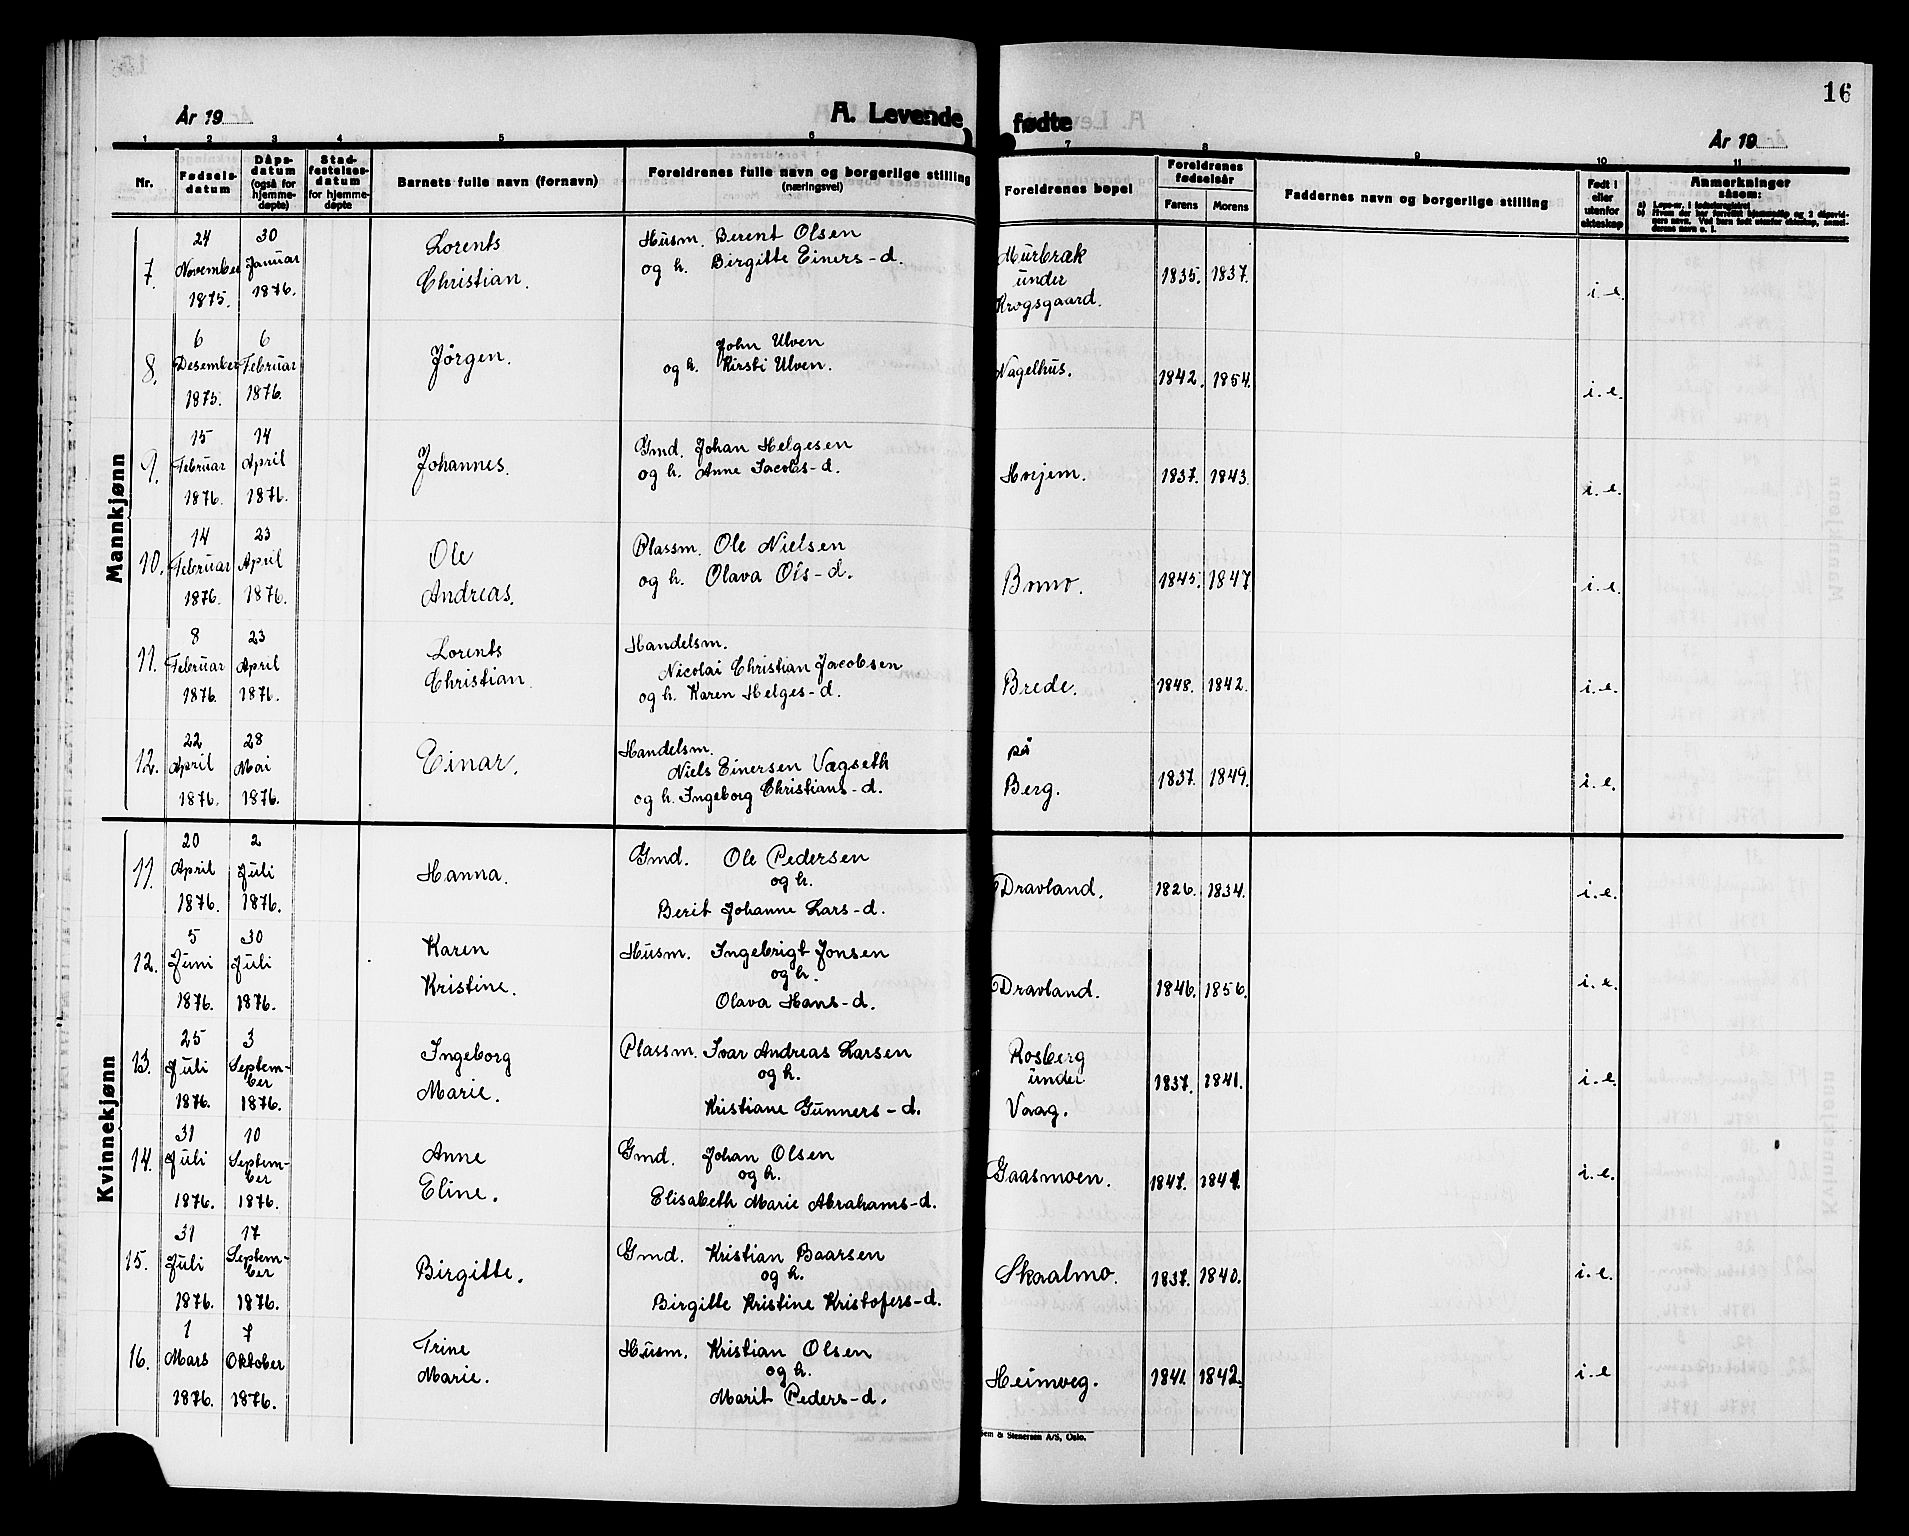 16
År 19
A. Levende
fødte
År 19
1 2 3 4 5 6 7 8 9 10 11
Nr.
Fødsels-
datum
Dåps-
datum
(også for
hjemme-
døpte)
Stad-
festelses-
datum
for hjemme-
døpte
Barnets fulle navn (fornavn)
Foreldrenes fulle navn og borgerlige stilling
(næringsvei)
Foreldrenes bopel
Foreldrenes
fødselsår
Farens
Morens
Faddernes navn og borgerlige stilling
Født i
eller
utenfor
ekteskap
Anmerkninger
såsom:
Mannkjønn
7.
24
November
1875.
30
Januar
1876.
Lorents
Christian.
Husm. Berent Olsen
og h. Birgitte Einers-d.
Murbræk
under
Krogsgaard.
1835. 1837.
i.e.
8.
6
Desember
1875.
6
Februar
1876.
Jørgen.
John Ulven
og h. Kirsti Ulven.
Nagelhus.
1842. 1854.
i.e.
9.
15
Februar
1876.
14
April
1876.
Johannes.
Gmd. Johan Helgesen
og h. Anne Jacobs-d.
Hvjem.
1837. 1843.
i.e.
10.
14
Februar
1876.
23
April
1876.
Ole
Andreas.
Plassm. Ole Nielsen
og h. Olava Ols-d.
Bomo.
1845. 1847
i.e.
11.
8
Februar
1876.
23
April
1876.
Lorents
Christian.
Handelsm.
Nicolai Christian Jacobsen
og h. Karen Helges-d.
Brede.
1848. 1842.
i.e.
12.
22
April
1876.
28
Mai
1876.
Einar.
Handelsm.
Niels Einersen Vægseth
og h. Ingeborg Christians-d.
på
Berg.
1837. 1849.
i.e.
Kvinnekjønn
11.
20
April
1876.
2
Juli
1876.
Hanna.
Gmd. Ole Pedersen
og h.
Berit Johanne Lars-d.
Dravland.
1826. 1834.
i.e.
12.
5
Juni
1876.
30
Juli
1876.
Karen
Kristine.
Husm. Ingebrigt Jonsen
og h.
Olava Hans-d.
Dravland.
1846. 1856.
i.e.
13.
25
Juli
1876.
3
Septem-
ber
1876.
Ingeborg
Marie.
Plassm. Ivar Andreas Larsen
og h.
Kristiane Gunners-d.
Rosberg
under
Vaag.
1837. 1841.
i.e.
14.
31
Juli
1876.
10
Septem-
ber
1876.
Anne
Eline.
Gmd. Johan Olsen
og h.
Elisabeth Marie Abrahams-d.
Gaasmoen.
1847.
i.e.
15.
31
Juli
1876.
17
Septem-
ber
1876.
Birgitte.
Gmd. Kristian Baarsen
og h.
Birgitte Kristine Kristofers-d.
Skaalmo.
1837. 1840.
i.e.
16.
1
Mars
1876.
7
Oktober
1876.
Trine
Marie.
Husm. Kristian Olsen
og h.
Marit Peders-d.
Heimveg.
1841. 1842.
i.e
Sem & Stenersen A/S, Oslo.